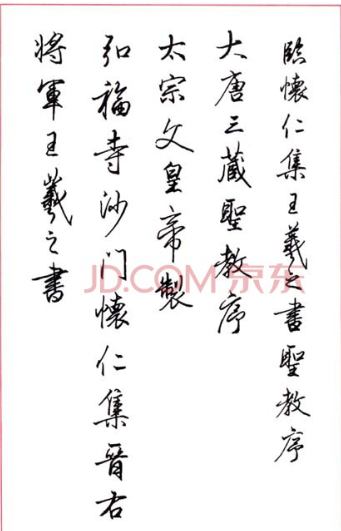 臨懷仁集王羲之書聖教序
大唐三藏聖教序
太宗文皇帝製
弘福寺沙门懷仁集晉右
將軍王羲之書
JD.COM 京东